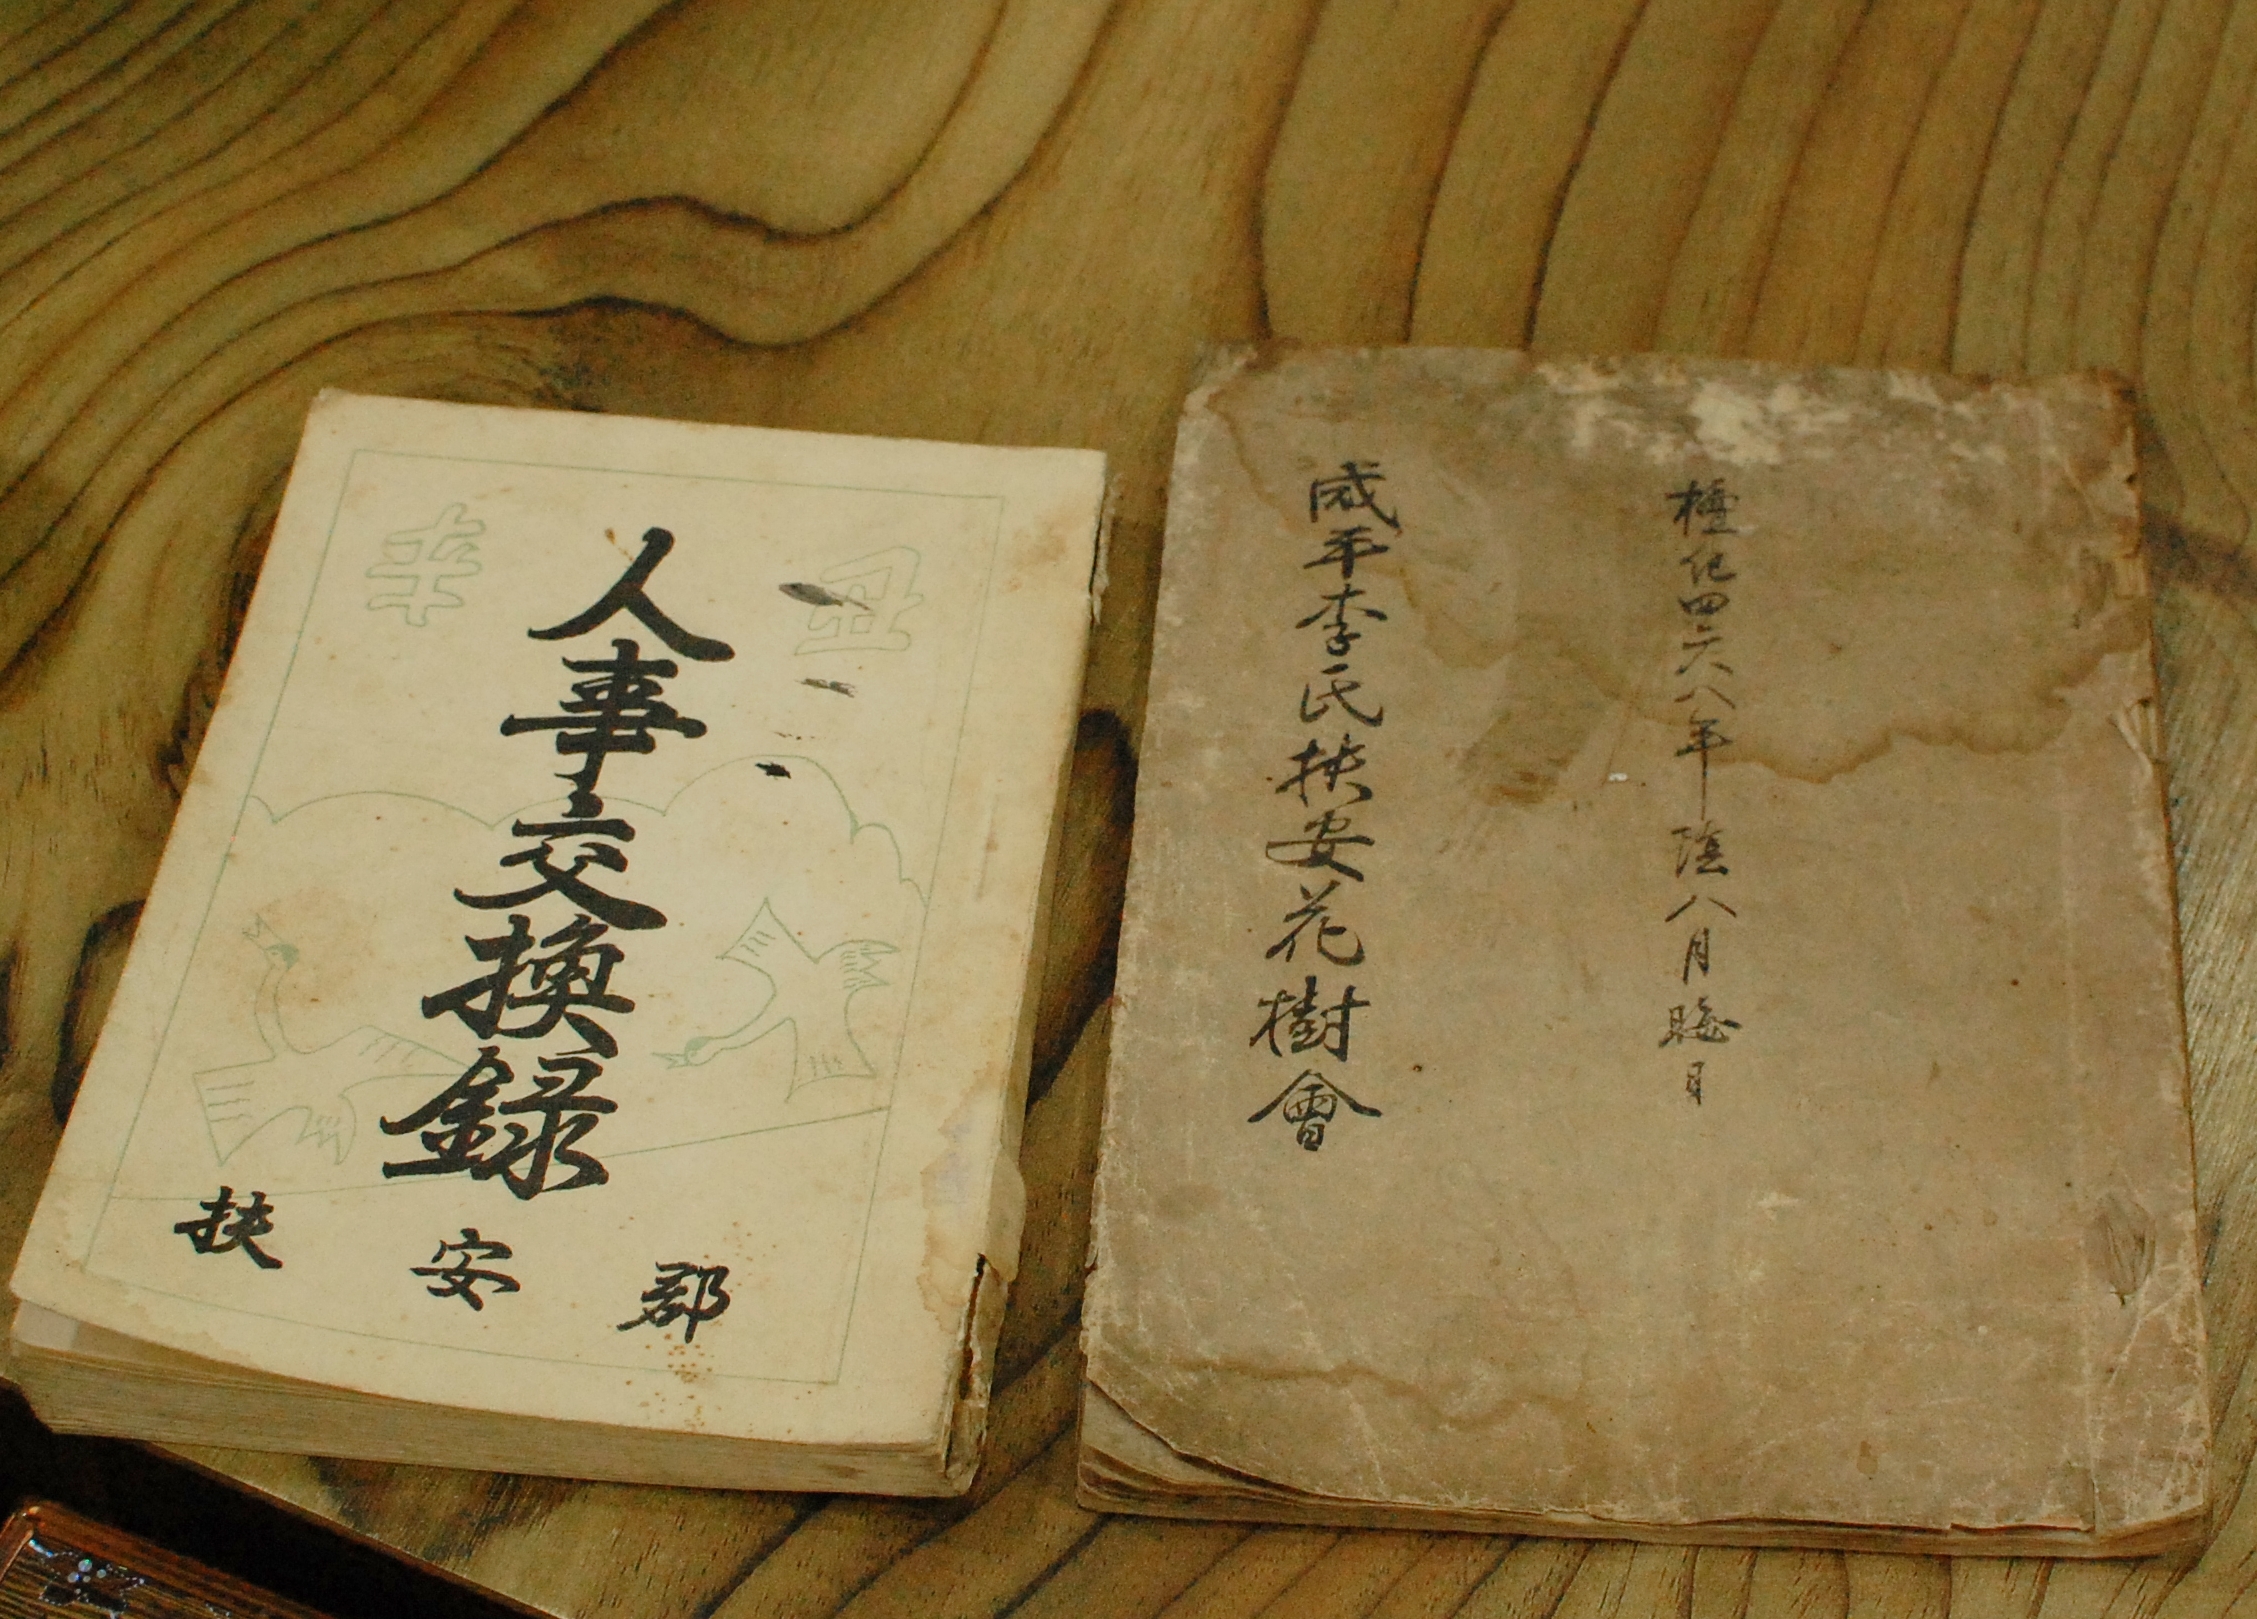 辛丑
人事交換錄
扶安郡
檀紀四二六八年陰八月晦日
咸平李氏扶安花樹會